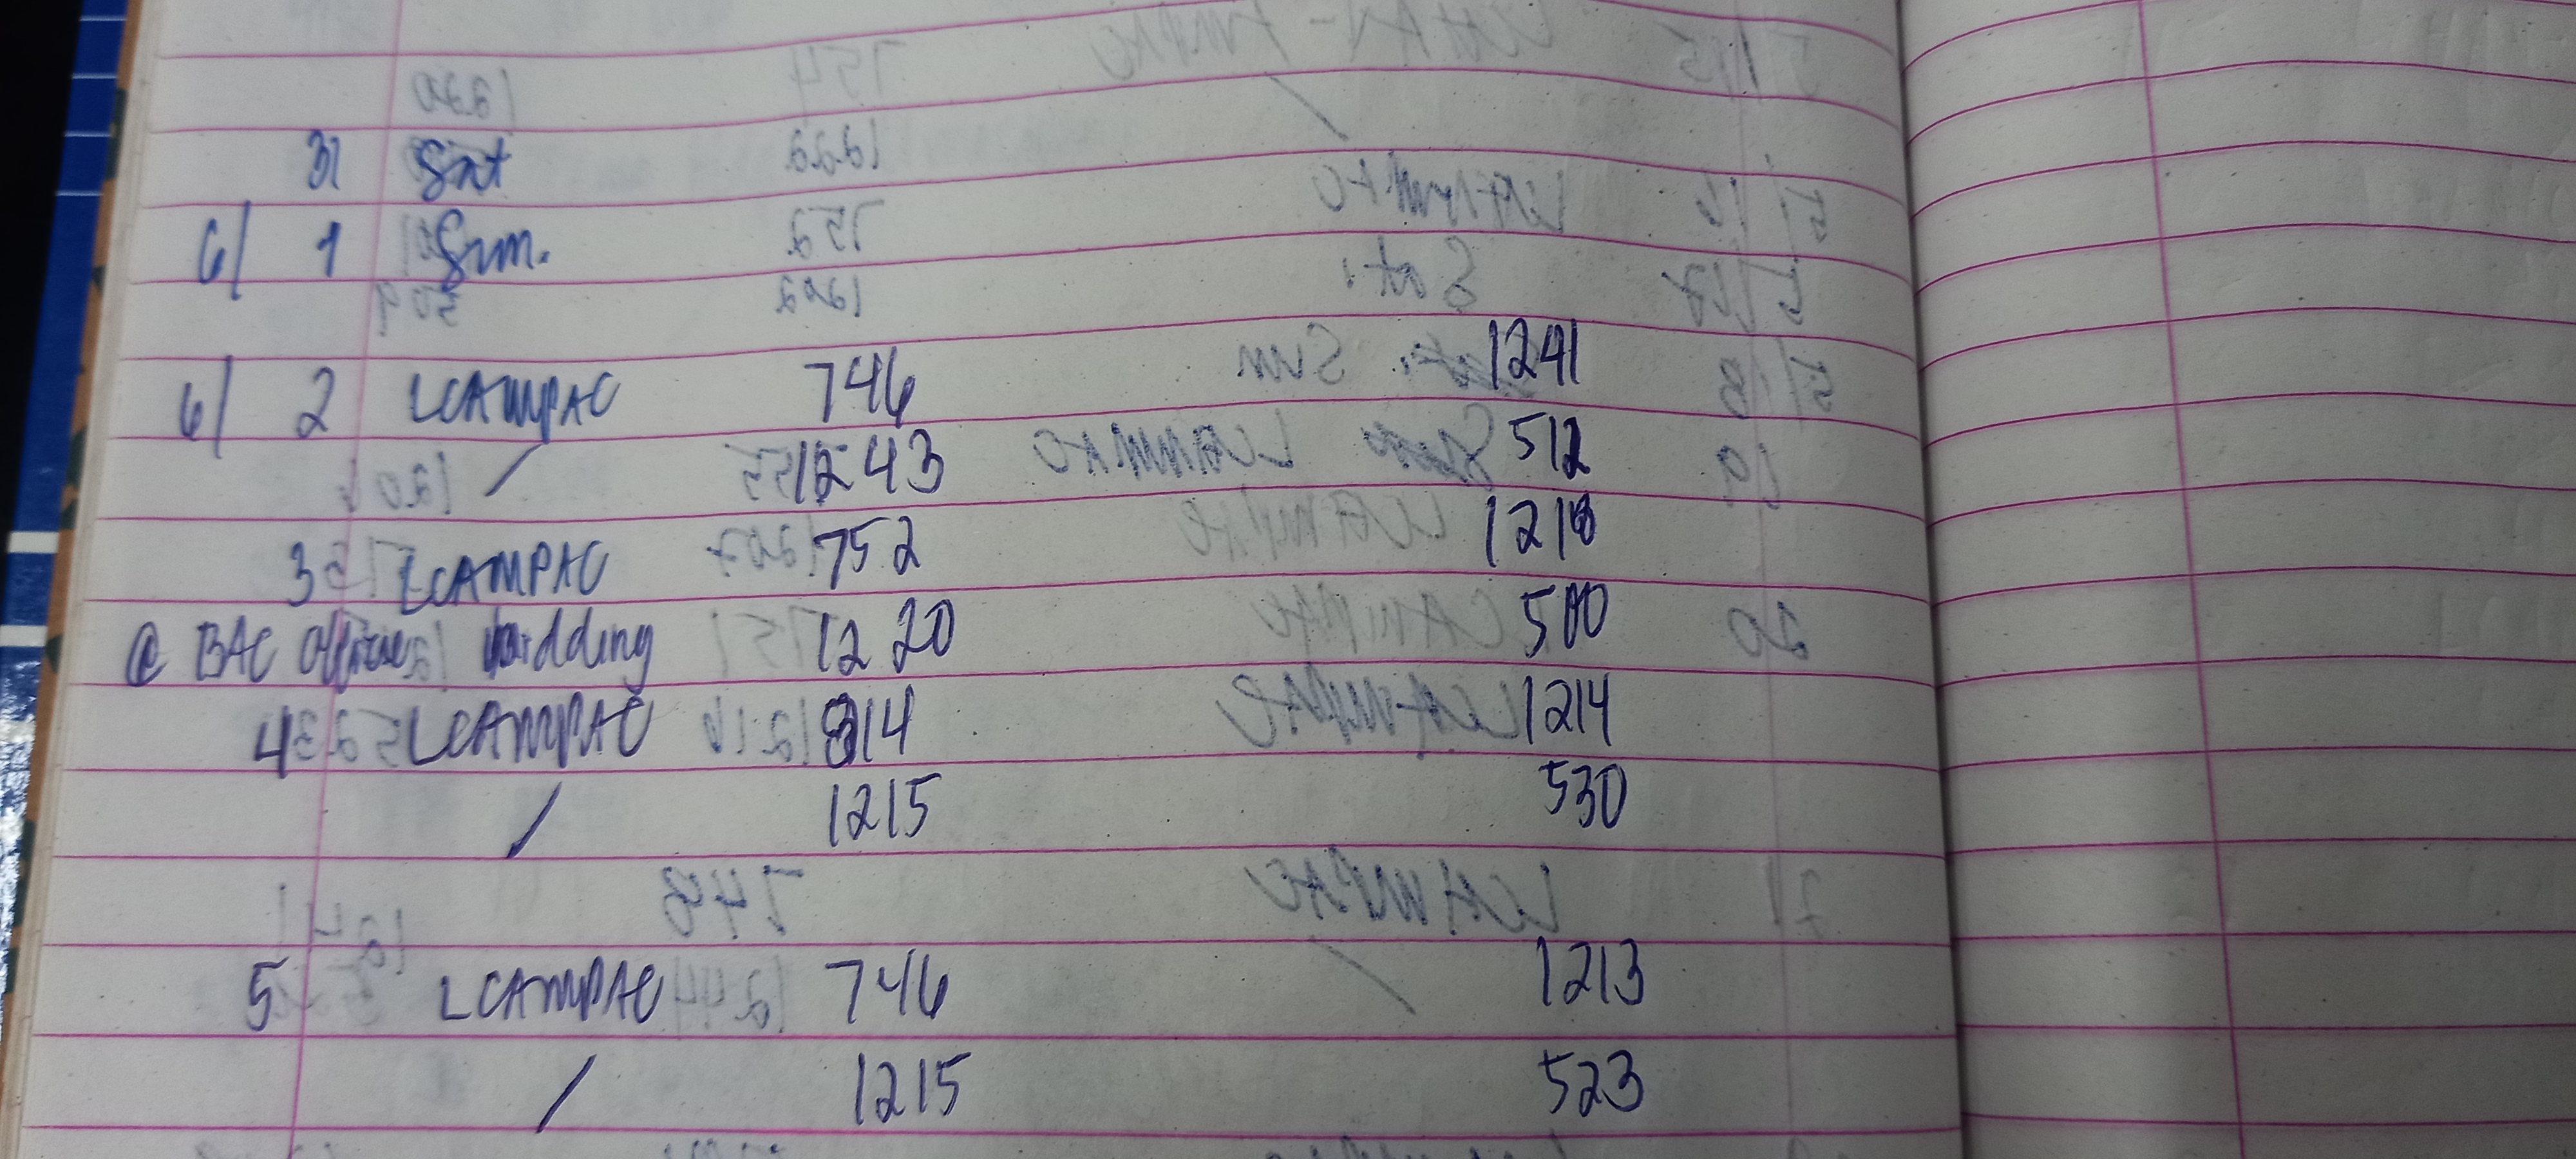 31 Sat
6/ 1 Sun.
6/ 2 LCAMPAC 746 1241
/ 1243 512
3 LCAMPAC 752 1218
@ BAC office bidding 1220 500
4 LCAMPAC 814 1214
/ 1215 530
5 LCAMPAC 746 1213
/ 1215 523